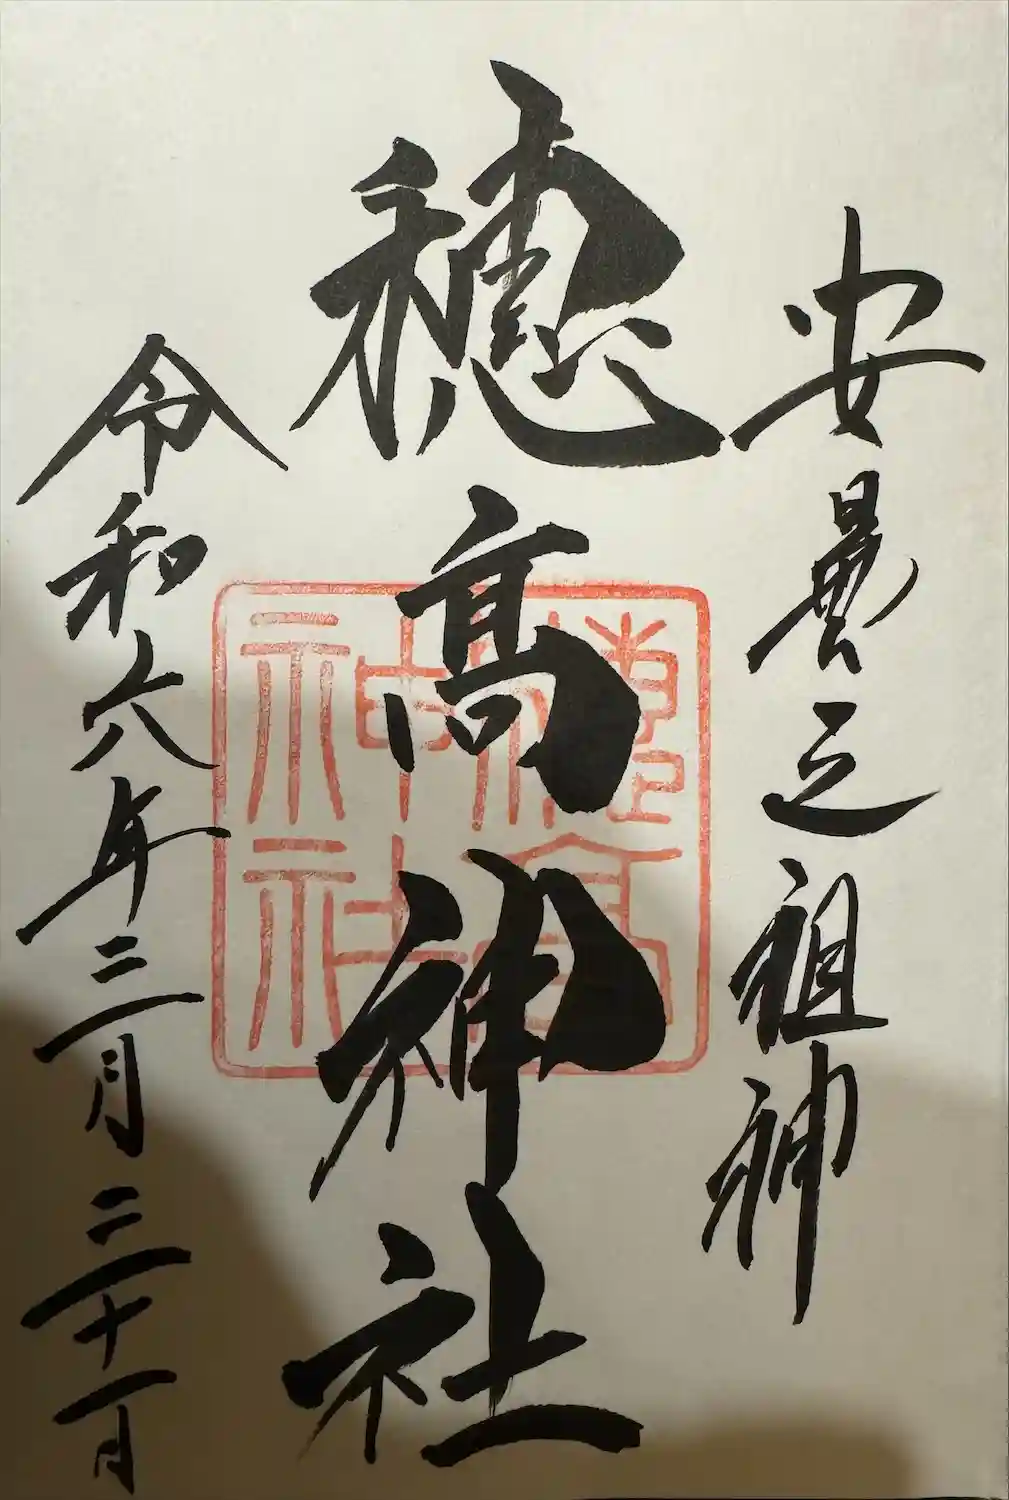 安曇之祖神
穗髙神社
穗高
神社
令和六年三月三十一日